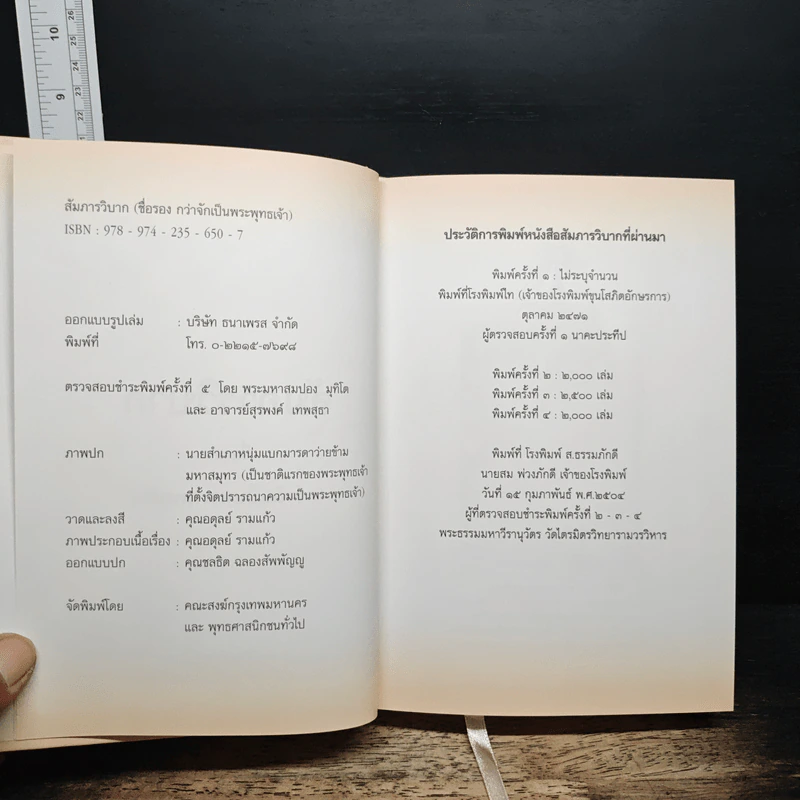 10
9
26
25
24
23
22
21
สัมภารวิบาก (ชื่อรอง กว่าจักเป็นพระพุทธเจ้า)
ISBN : 978 - 974 - 235 - 650 - 7
ออกแบบรูปเล่ม : บริษัท ธนาเพรส จำกัด
พิมพ์ที่ โทร. ๐-๒๒๑๕-๗๖๙๘
ตรวจสอบชำระพิมพ์ครั้งที่ ๕ โดย พระมหาสมปอง มุทิโต
และ อาจารย์สุรพงศ์ เทพสุธา
ภาพปก : นายสำเภาหนุ่มแบกมารดาว่ายข้าม
มหาสมุทร (เป็นชาติแรกของพระพุทธเจ้า
ที่ตั้งจิตปรารถนาความเป็นพระพุทธเจ้า)
วาดและลงสี : คุณอดุลย์ รามแก้ว
ภาพประกอบเนื้อเรื่อง : คุณอดุลย์ รามแก้ว
ออกแบบปก : คุณชลธิต ฉลองสัพพัญญู
จัดพิมพ์โดย : คณะสงฆ์กรุงเทพมหานคร
และ พุทธศาสนิกชนทั่วไป
ประวัติการพิมพ์หนังสือสัมภารวิบากที่ผ่านมา
พิมพ์ครั้งที่ ๑ : ไม่ระบุจำนวน
พิมพ์ที่โรงพิมพ์ไท (เจ้าของโรงพิมพ์ขุนโสภิตอักษรการ)
ตุลาคม ๒๔๗๑
ผู้ตรวจสอบครั้งที่ ๑ นาคะประทีป
พิมพ์ครั้งที่ ๒ : ๒,๐๐๐ เล่ม
พิมพ์ครั้งที่ ๓ : ๒,๕๐๐ เล่ม
พิมพ์ครั้งที่ ๔ : ๒,๐๐๐ เล่ม
พิมพ์ที่ โรงพิมพ์ ส.ธรรมภักดี
นายสม พ่วงภักดี เจ้าของโรงพิมพ์
วันที่ ๑๕ กุมภาพันธ์ พ.ศ.๒๕๐๔
ผู้ที่ตรวจสอบชำระพิมพ์ครั้งที่ ๒ - ๓ - ๔
พระธรรมมหาวีรานุวัตร วัดไตรมิตรวิทยารามวรวิหาร